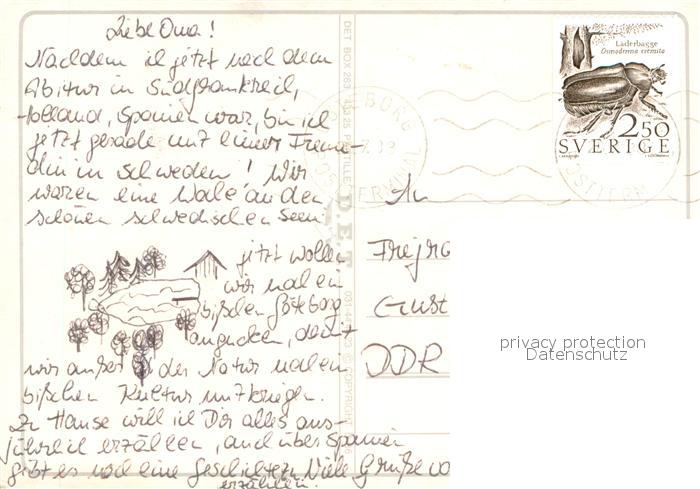 Liebe Oma!
Nachdem ich jetzt nach dem
Abitur in Südfrankreich,
Holland, Spanien war, bin ich
jetzt gerade mit einer Freun-
din in Schweden! Wir
waren eine Woche an den
schönen schwedischen Seen.
jetzt wollen
wir noch ein
bißchen Göteborg
angucken, damit
wir außer der Natur noch ein
bißchen Kultur mitkriegen.
Zu Hause will ich Dir alles aus-
führlich erzählen, auch über Spanien
gibt es noch eine Geschichte zu
erzählen. Viele Grüße
An
DDR
Läderbagge
Osmoderma eremita
2.50
SVERIGE
privacy protection
Datenschutz
D.E.T.
© COPYRIGHT